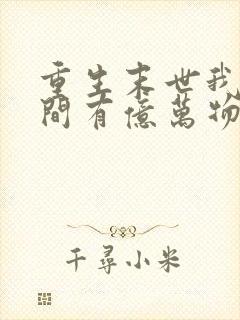 重生末世我
間有億萬物
千尋小米